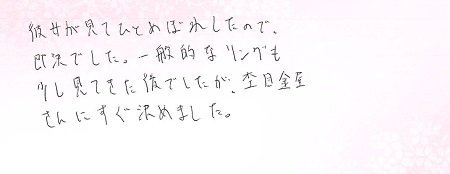 彼女が見てひとめぼれしたので、
即決でした。一般的なリングも
少し見てきた後でしたが、杢目金屋
さんにすぐ決めました。